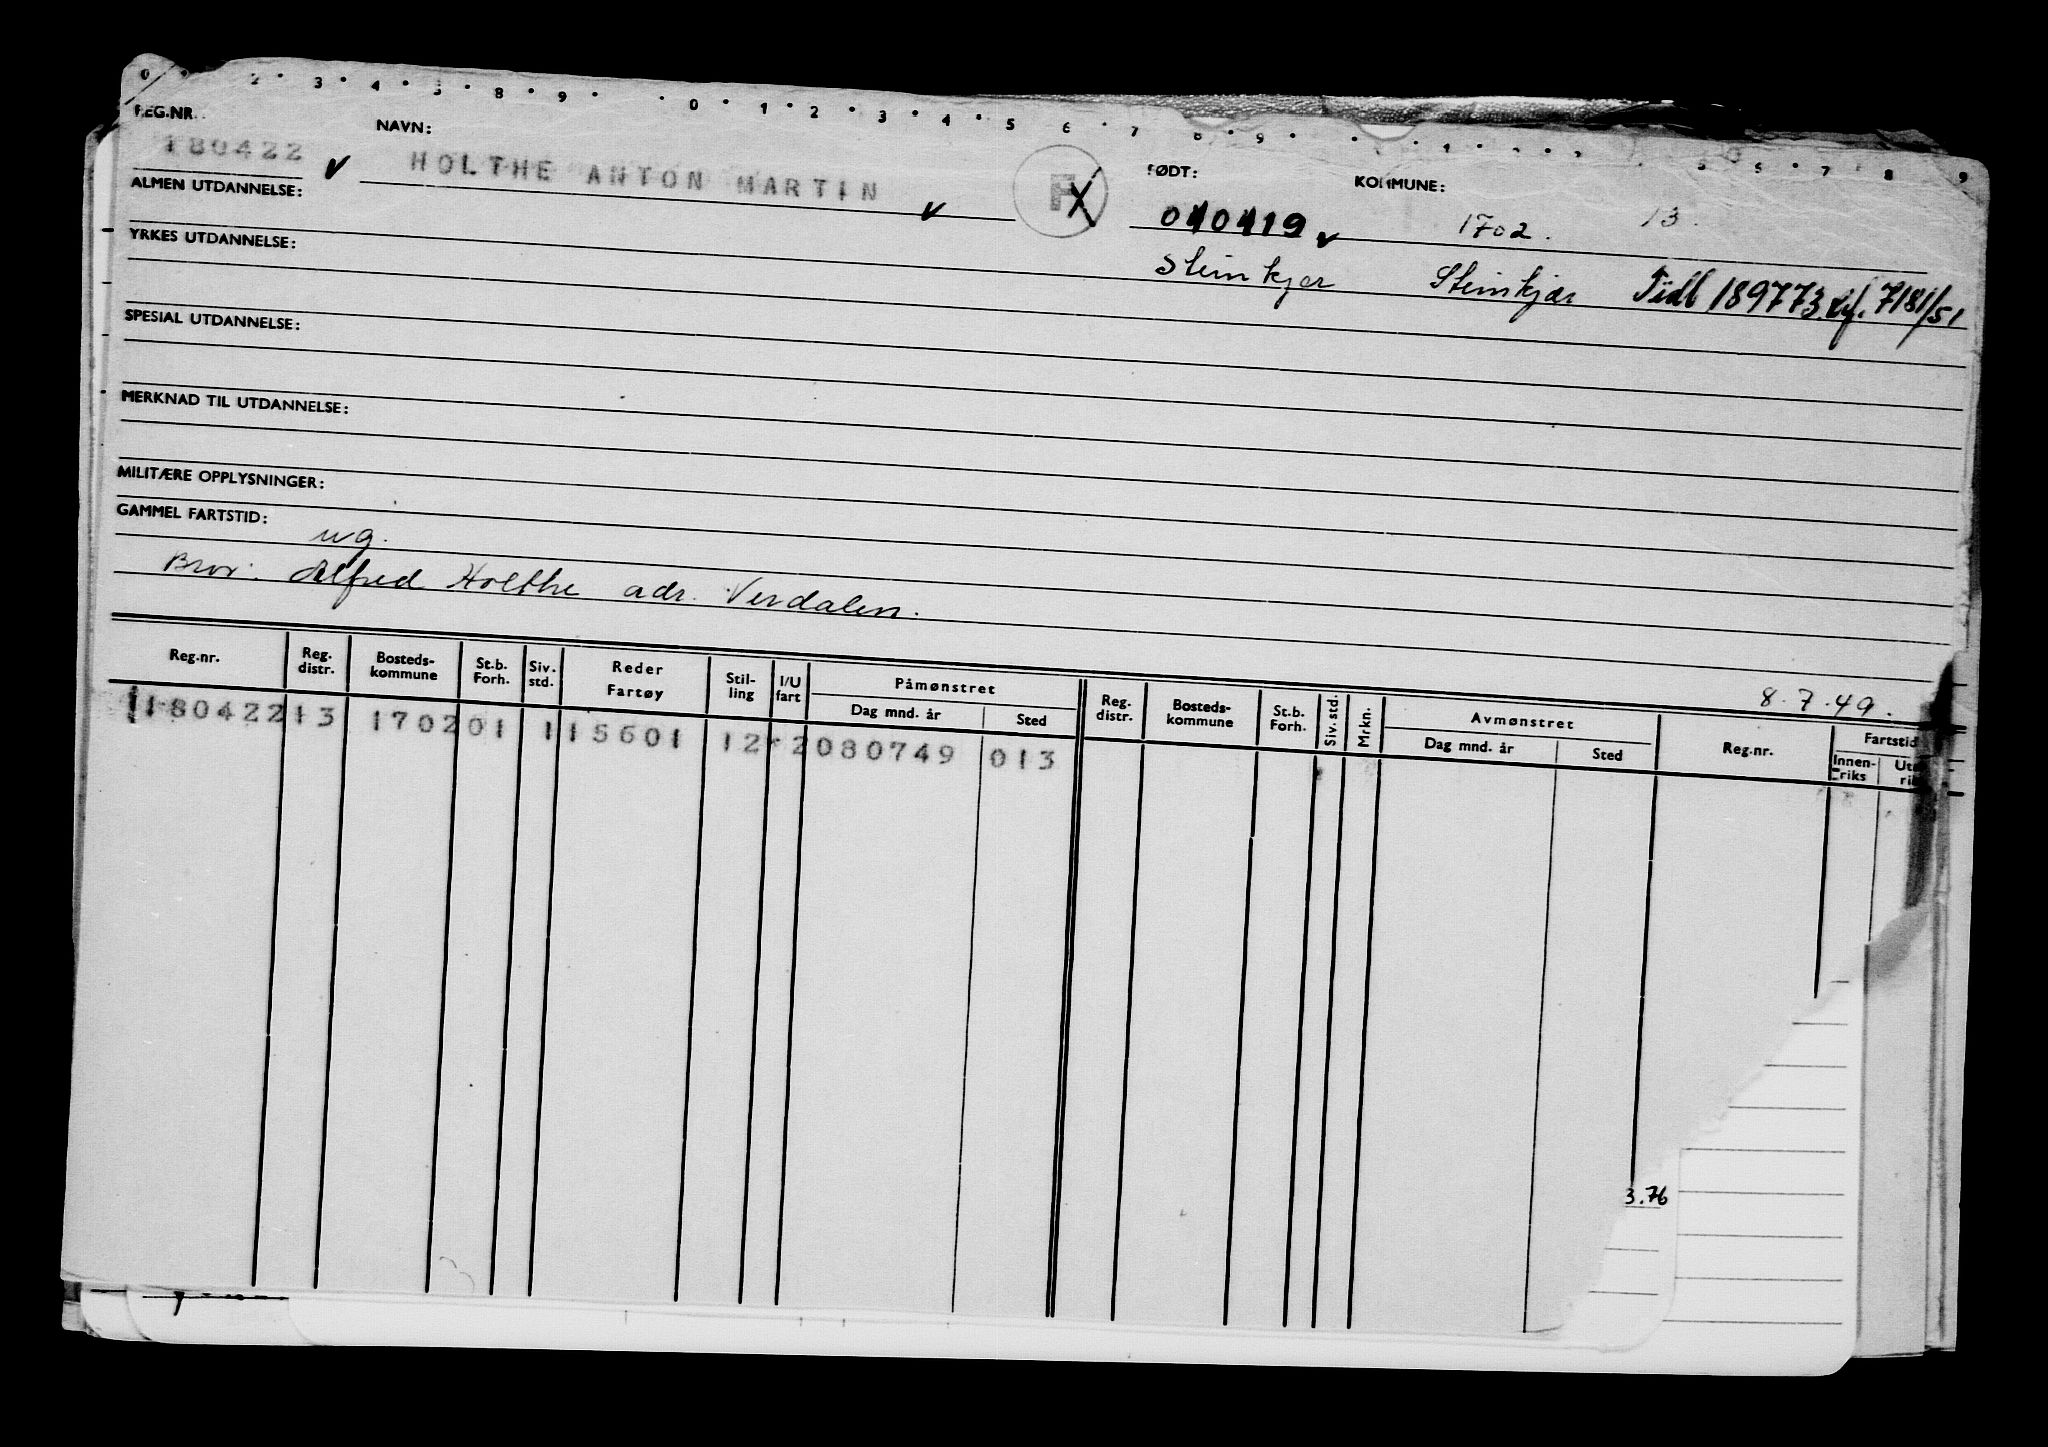 0 · 2 · 3 · 4 · 5 8 · 9 · · 0 · 1 · 2 · 3 · 4 · 5 · 6 · 7 · 8 · 9 · 5 · 6 · 7 · 8 · 9
REG.NR. NAVN: FØDT: KOMMUNE:
180422 v HOLTHE ANTON MARTIN v F X 040419 v 1702. 13.
ALMEN UTDANNELSE:
Steinkjer Steinkjær Tidl 189773 
7181/51
YRKES UTDANNELSE:
SPESIAL UTDANNELSE:
MERKNAD TIL UTDANNELSE:
MILITÆRE OPPLYSNINGER:
GAMMEL FARTSTID:
ug.
Bror: Alfred Holthe adr. Verdalen.
8.7.49.
Reg.nr. Reg. distr. Bosteds-kommune St.b. Forh. Siv. std. Reder Fartøy Stil-ling I/U fart Påmønstret Dag mnd. år Sted Reg. distr. Bosteds-kommune St.b. Forh. Siv. std. Mrkn. Avmønstret Dag mnd. år Sted Reg.nr. Fartstid Innen-riks
180422 13 1702 01 1 115601 12 * 2 080749 013
3.76